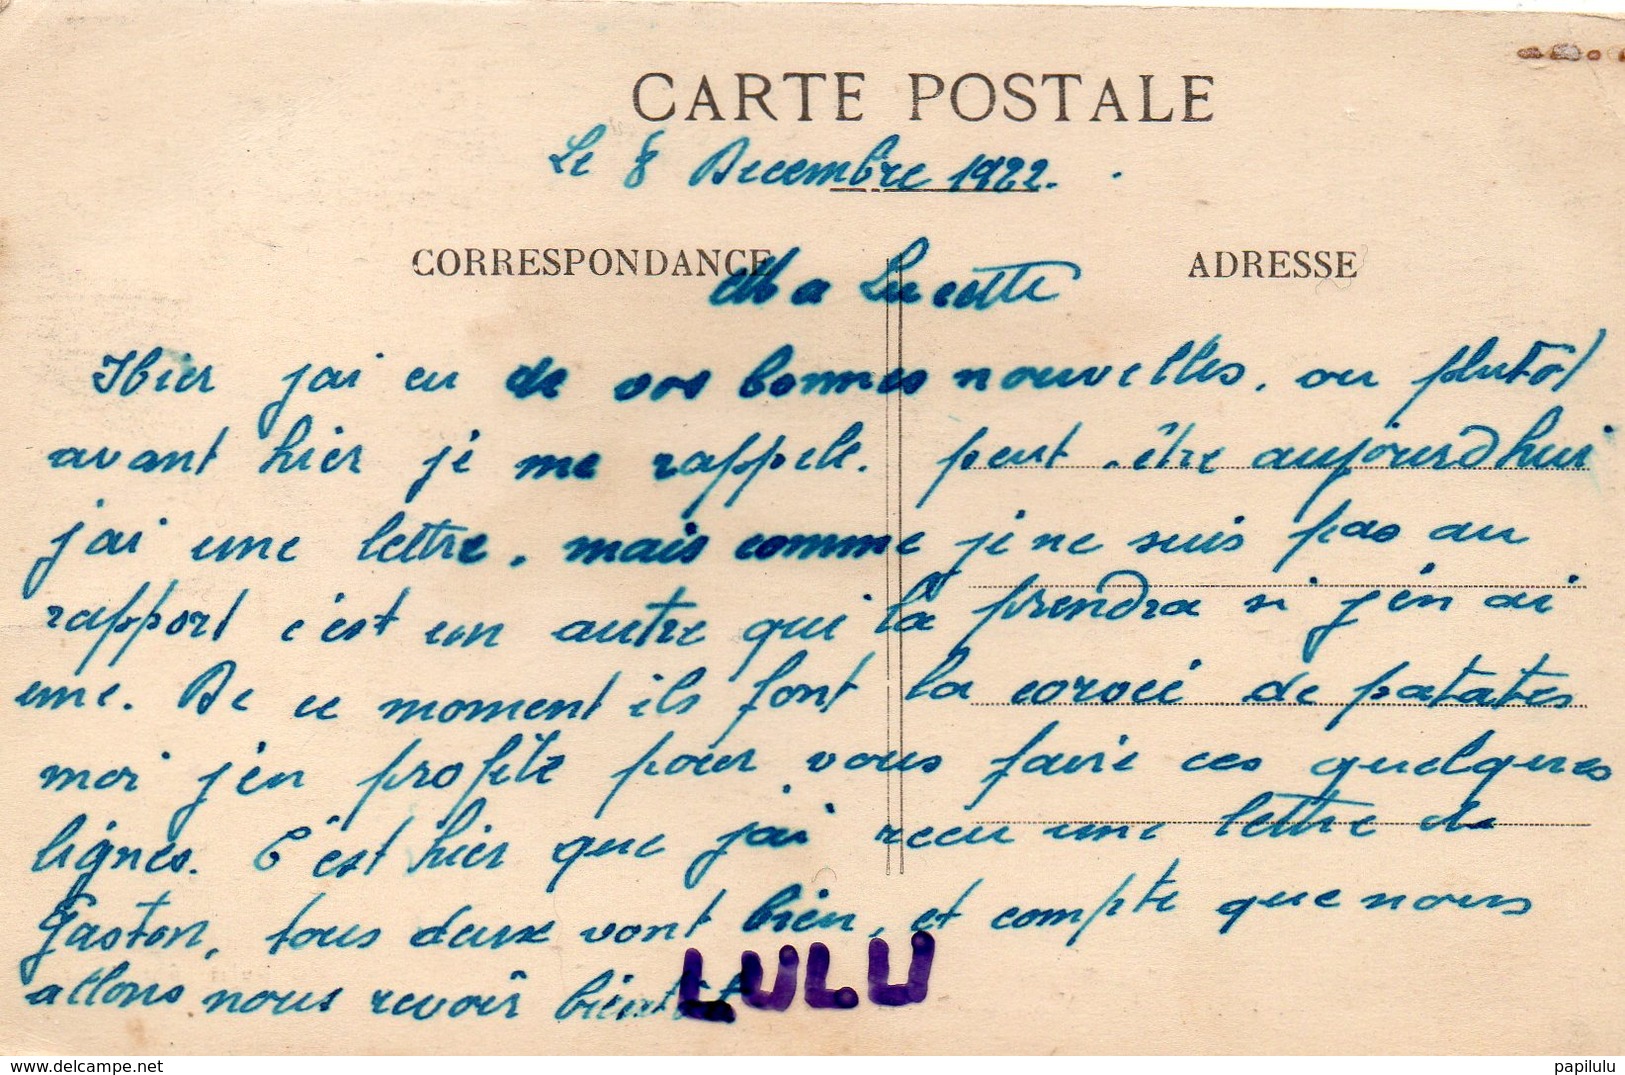 CARTE POSTALE
Le 8 Decembre 1922.
CORRESPONDANCE
ADRESSE
Ma Lucette
Hier j'ai eu de vos bonnes nouvelles, ou plutot
avant hier je me rappele. peut-être aujourd'hui
j'ai une lettre, mais comme je ne suis pas au
rapport c'est un autre qui la prendra si j'en ai
une. De ce moment ils font la corvée de patates
moi j'en profite pour vous faire ces quelques
lignes. C'est hier que j'ai recu une lettre de
Gaston, tous deux vont bien, et compte que nous
allons nous revoir bientôt
LULU
delcampe.net
papilulu